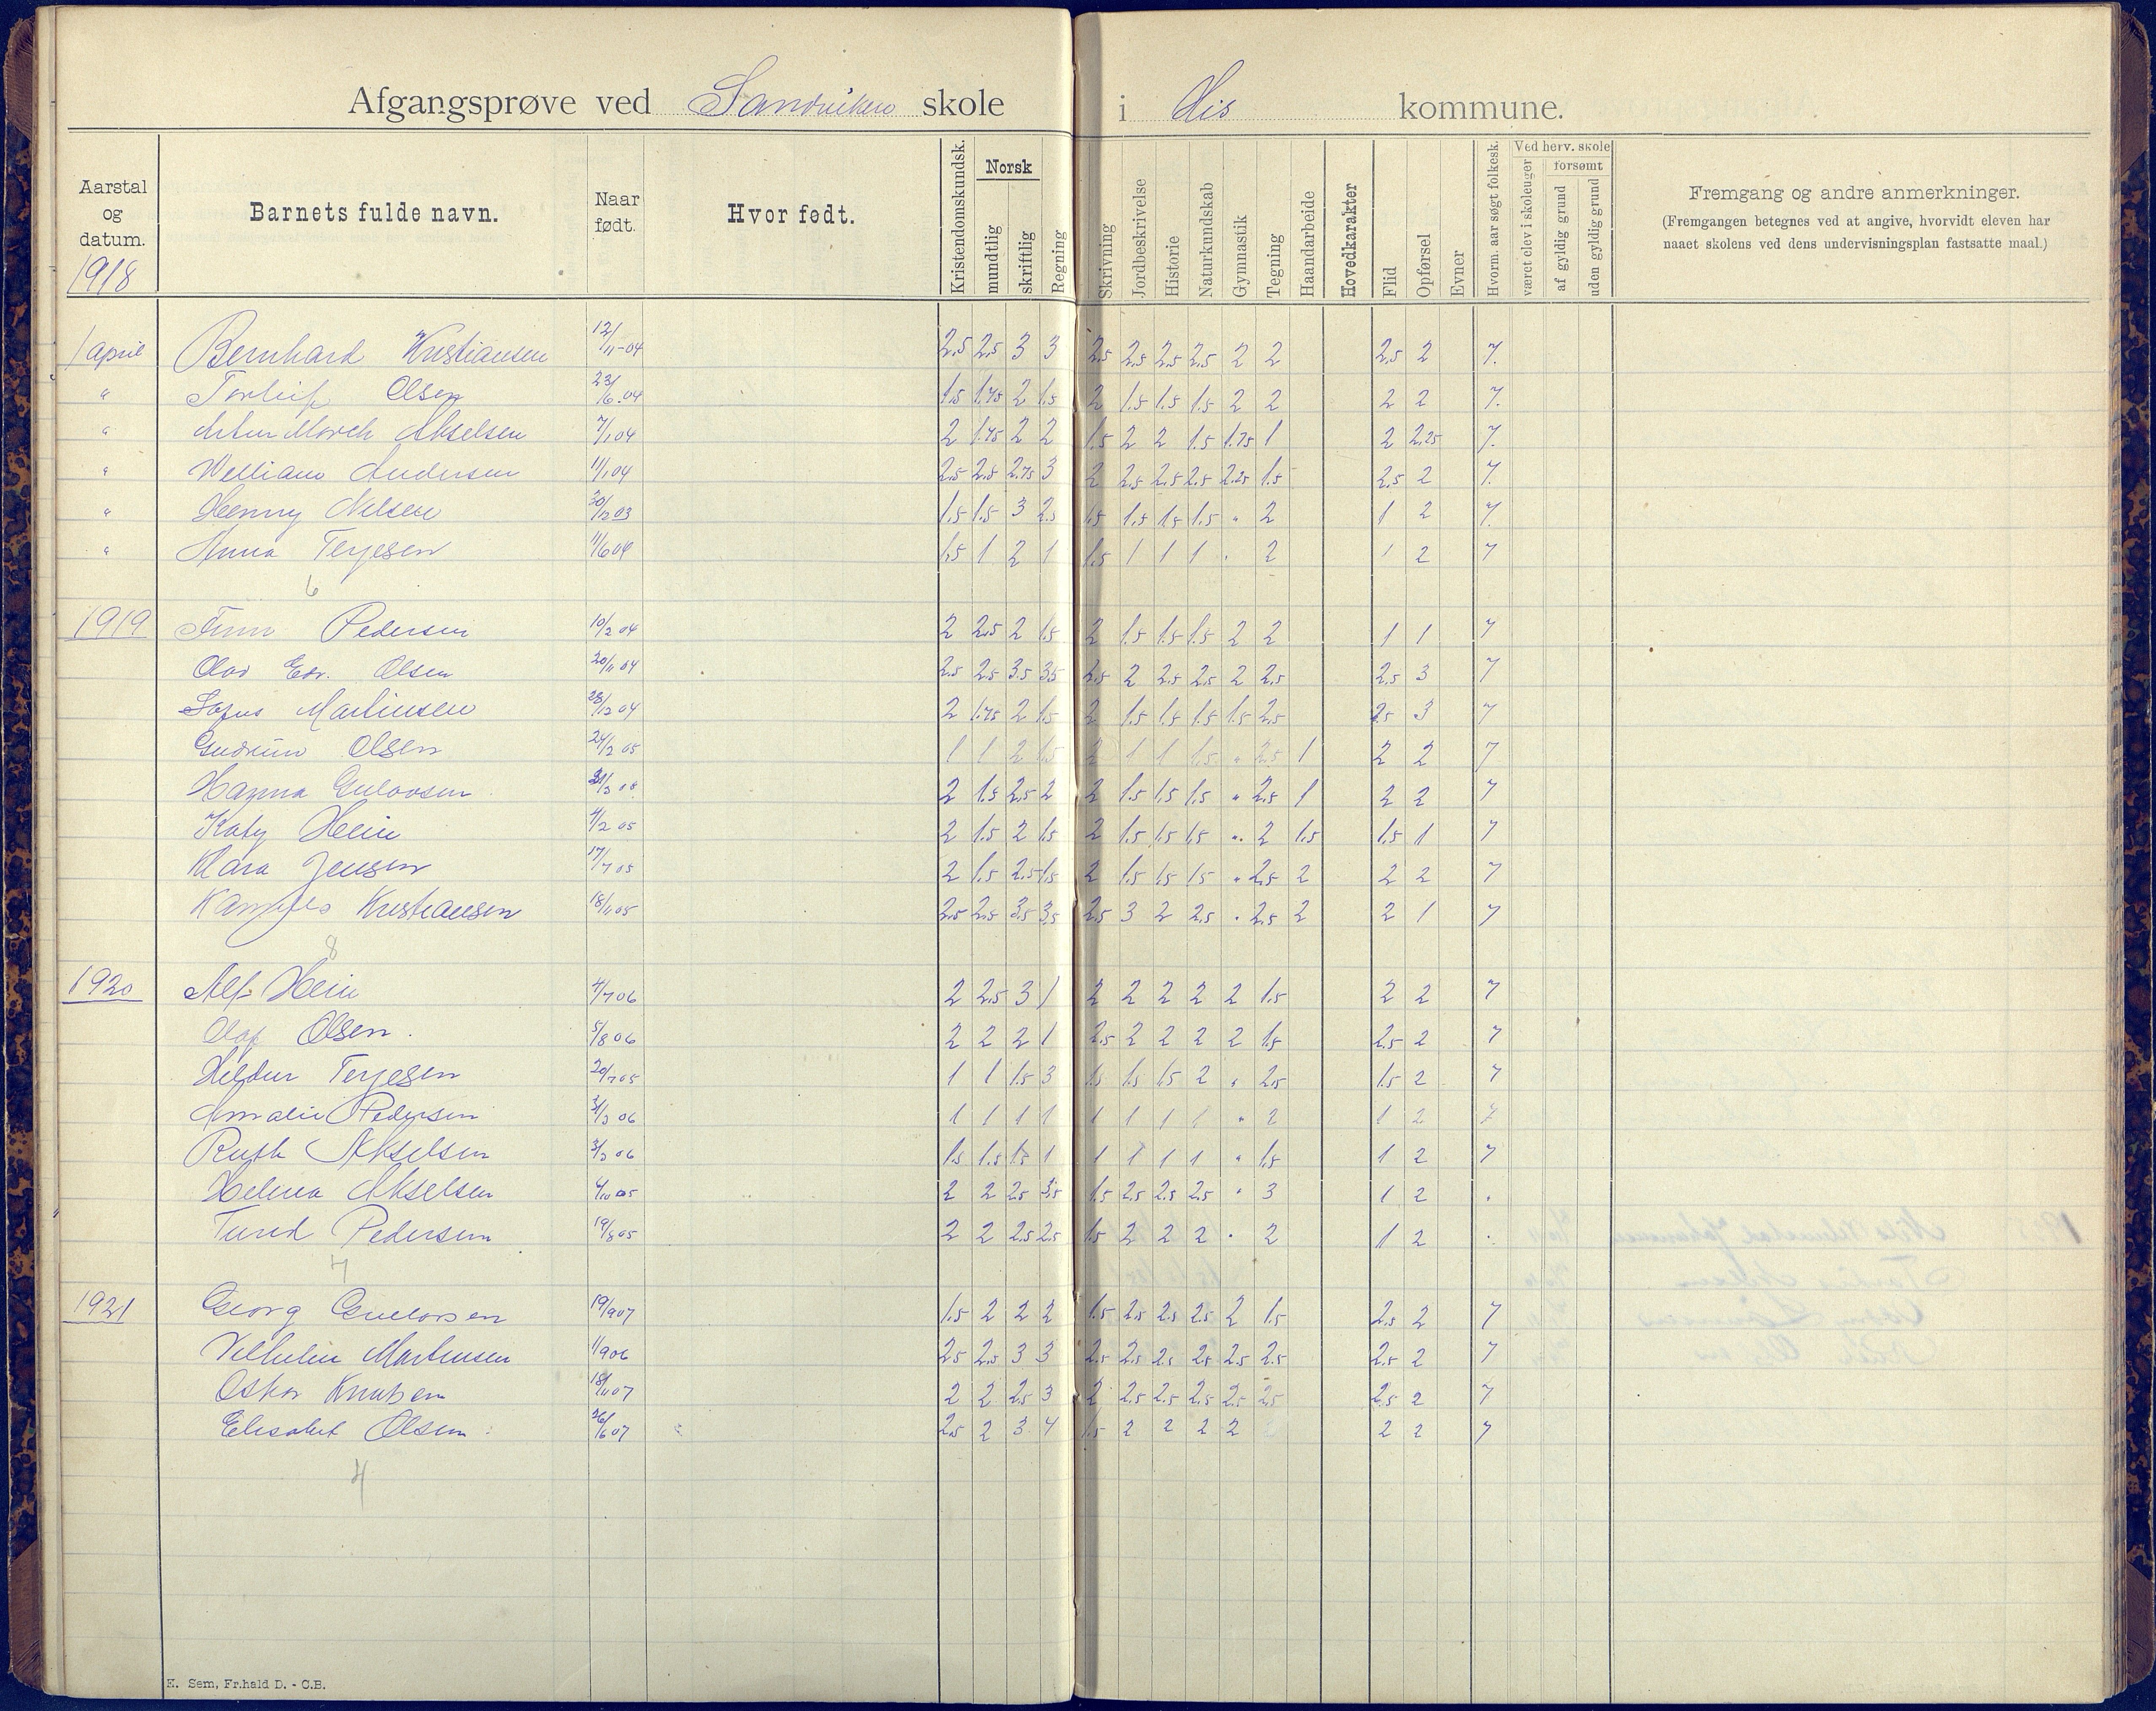 Afgangsprøve ved Sandviken skole i His kommune.
Aarstal og datum. Barnets fulde navn. Naar født. Hvor født. Kristendomskundsk. Norsk mundtlig skriftlig Regning Skrivning Jordbeskrivelse Historie Naturkundskab Gymnastik Tegning Haandarbeide Hovedkarakter Flid Opførsel Evner Hvorm. aar søgt folkesk. Ved herv. skole været elev i skoleuger forsømt af gyldig grund uden gyldig grund Fremgang og andre anmerkninger.
(Fremgangen betegnes ved at angive, hvorvidt eleven har
naaet skolens ved dens undervisningsplan fastsatte maal.)
1918
1 april Bernhard Kristiansen 12/11-04 2.5 2.5 3 3 2.5 2.5 2.5 2.5 2 2 2.5 2 7.
" Torleif Olsen 23/6.04 1.5 1.75 2 1.5 2 1.5 1.5 1.5 2 2 2 2 7.
" Artur Morch Akselsen 7/1 04 2 1.75 2 2 1.5 2 2 1.5 1.75 1 2 2.25 7.
" William Andersen 11/1 04 2.5 2.5 2.75 3 2 2.5 2.5 2.5 2.25 1.5 2.5 2 7.
" Henny Nilsen 30/12 03 1.5 1.5 3 2.5 1.5 1.5 1.5 1.5 " 2 1 2 7.
" Anna Terjesen 11/6 04 1.5 1 2 1 1.5 1 1 1 . 2 1 2 7
6
1919 Finn Pedersen 10/2 04 2 2.5 2 1.5 2 1.5 1.5 1.5 2 2 1 1 7
Olav Edv. Olsen 20/11 04 2.5 2.5 3.5 3.5 2.5 2 2.5 2.5 2 2.5 2.5 3 7
Sofus Martinsen 28/12 04 2 1.75 2 1.5 2 1.5 1.5 1.5 1.5 2.5 2.5 3 7
Gudrun Olsen 24/2 05 1 1 2 1.5 2 1 1 1.5 " 2.5 1 2 2 7
Hanna Gulovsen 2 1.5 2.5 2 2 1.5 1.5 1.5 " 2.5 1 2 2 7
Katy Hein 4/2 05 2 1.5 2 1.5 2 1.5 1.5 1.5 " 2 1.5 1.5 1 7
Klara Jensen 17/7 05 2 1.5 2.5 1.5 2 1.5 1.5 1.5 " 2.5 2 2 2 7
Kristiansen 18/11 05 2.5 2.5 3.5 3.5 2.5 3 2 2.5 " 2.5 2 2 1 7
8
1920 Alf Hein 4/7 06 2 2.5 3 1 2 2 2 2 2 1.5 2 2 7
Olaf Olsen. 5/8 06 2 2 2 1 2.5 2 2 2 2 1.5 2.5 2 7
Hildur Terjesen 20/7 05 1 1 1.5 3 1.5 1.5 1.5 2 " 2.5 1.5 2 7
Amalie Pedersen 31/3 06 1 1 1 1 1 1 1 1 " 2 1 2 7
Ruth Akselsen 3/3 06 1.5 1.5 1.5 1 1 1 1 1 " 1.5 1 2 7
Helma Akselsen 4/10 05 2 2 2.5 3.5 1.5 2.5 2.5 2.5 " 3 1 2 .
Turid Pedersen 19/8 05 2 2 2.5 2.5 1.5 2 2 2 . 2 1 2 .
7
1921 Georg Gulovsen 19/9 07 1.5 2 2 2 1.5 2.5 2.5 2.5 2 1.5 2.5 2 7
Vilhelm Martinsen 1/9 06 2.5 2.5 3 3 2.5 2.5 2.5 2.5 2.5 2.5 2.5 2 7
Oskar Knutsen 18/11 07 2 2 2.5 3 2 2.5 2.5 2.5 2.5 2.5 2.5 2 7
Elisabet Olsen 26/6 07 2.5 2 3 4 1.5 2 2 2 2 2 2 7
4
E. Sem, Fr.hald D. - C.B.